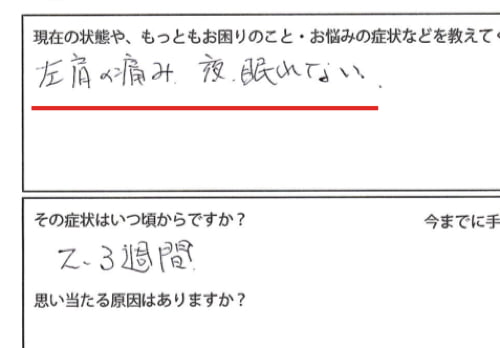 現在の状態や、もっともお困りのこと・お悩みの症状などを教えて
左肩の痛み. 夜. 眠れてない.
その症状はいつ頃からですか？
今までに手
2、3週間
思い当たる原因はありますか？